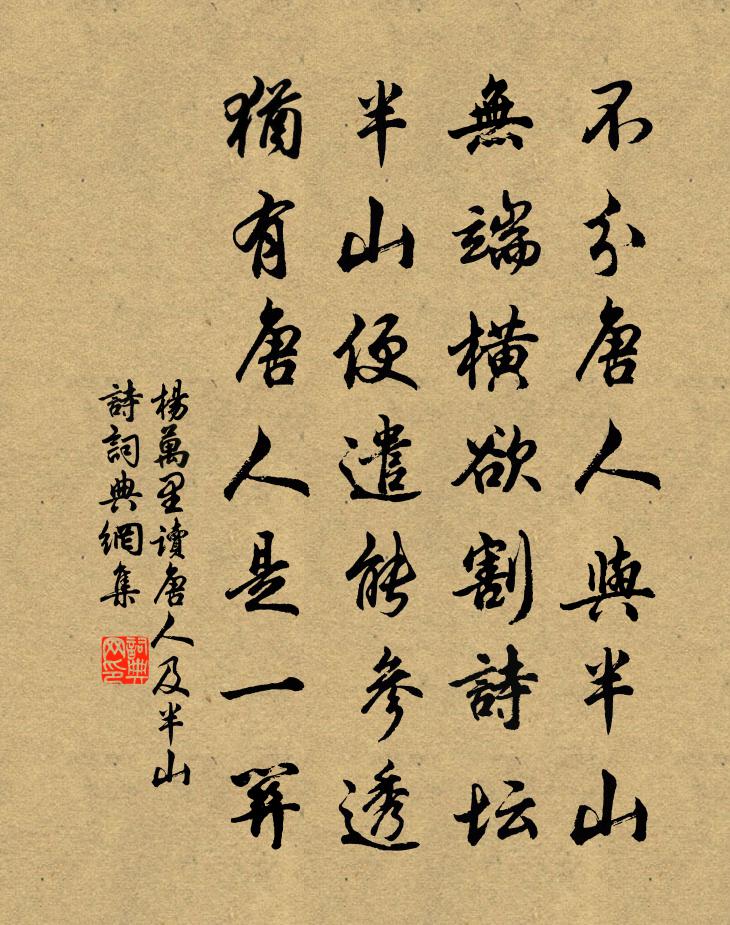 不分唐人與半山
無端橫欲割詩坛
半山便遣能參透
猶有唐人是一關
楊萬里讀唐人及半山
詩詞典網集
詞典
网印